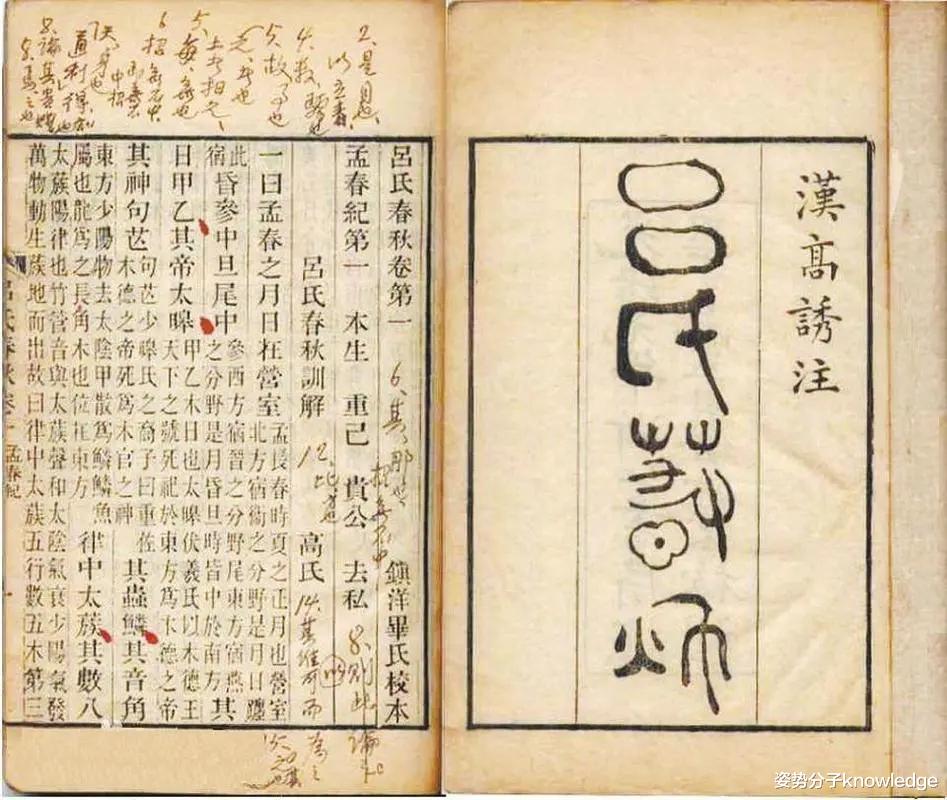 漢高誘注
呂氏春秋
呂氏春秋卷第一 鎮洋畢氏校本
孟春紀第一 本生 重己 貴公 去私
呂氏春秋訓解 高氏
一曰孟春之月日在營室孟長春時夏之正月也營室北方宿衞之分野是月日躔
此宿昏參中旦尾中參西方宿晉之分野尾東方宿燕之分野是月昏旦時皆中於南方其
日甲乙其帝太皞甲乙木日也太皞伏羲氏以木德王天下之號死祀於東方爲木德之帝
其神句芒句芒少皞氏之裔子曰重佐木德之帝死爲木官之神其蟲鱗其音角
東方少陽物去太陰甲散爲鱗鱗魚屬也龍爲之長角木也位在東方律中太蔟其數八
太蔟陽律也竹管音與太蔟聲和太陰氣衰少陽氣發
萬物動生蔟地而出故曰律中太蔟五行數五木第三
呂氏春秋 孟春紀
姿势分子knowledge